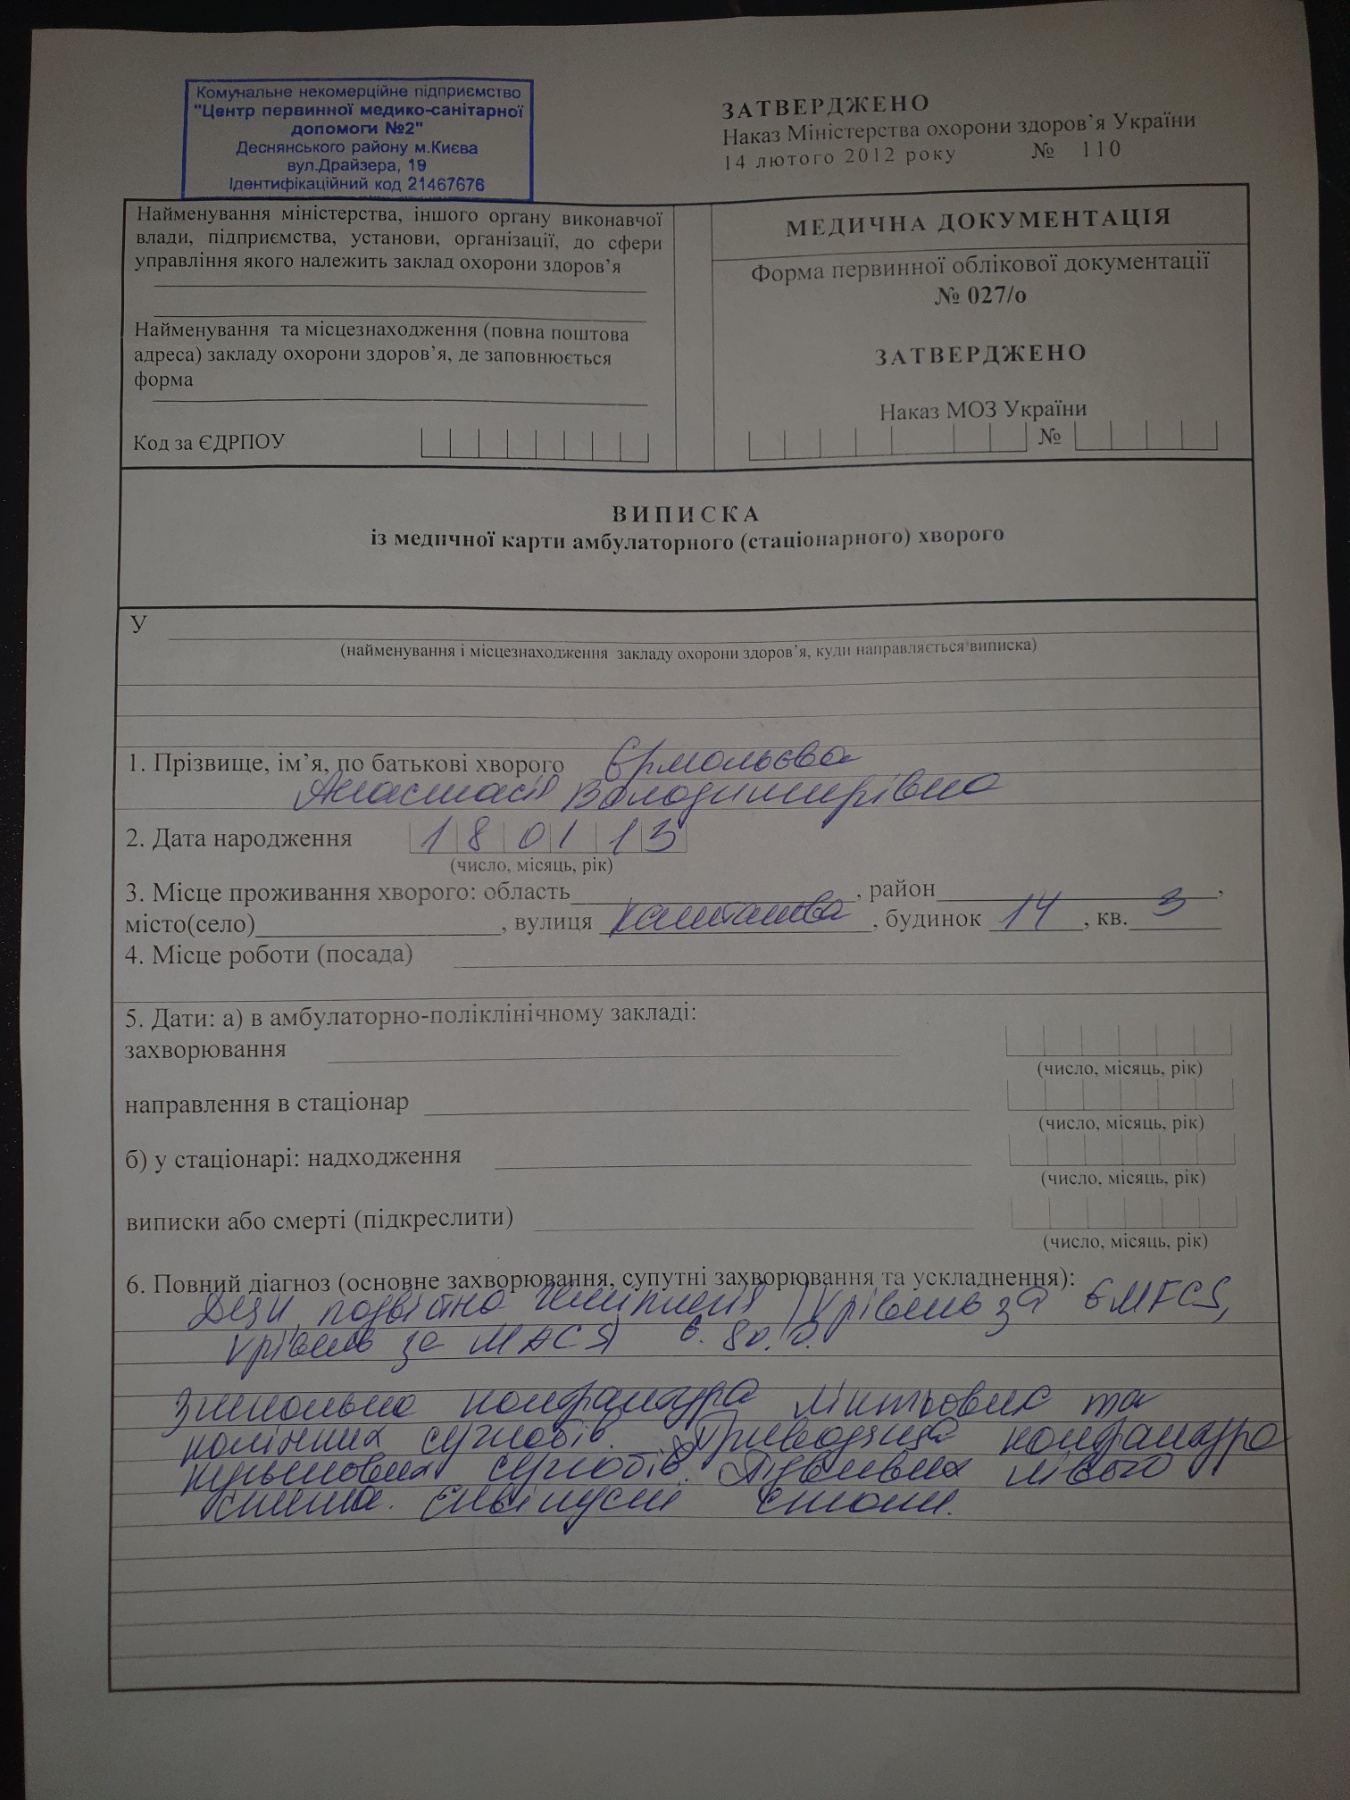 Комунальне некомерційне підприємство
"Центр первинної медико-санітарної
допомоги №2"
Деснянського району м.Києва
вул.Драйзера, 19
Ідентифікаційний код 21467676
ЗАТВЕРДЖЕНО
Наказ Міністерства охорони здоров'я України
14 лютого 2012 року № 110
Найменування міністерства, іншого органу виконавчої
влади, підприємства, установи, організації, до сфери
управління якого належить заклад охорони здоров'я
Найменування та місцезнаходження (повна поштова
адреса) закладу охорони здоров'я, де заповнюється
форма
Код за ЄДРПОУ
МЕДИЧНА ДОКУМЕНТАЦІЯ
Форма первинної облікової документації
№ 027/о
ЗАТВЕРДЖЕНО
Наказ МОЗ України
№
ВИПИСКА
із медичної карти амбулаторного (стаціонарного) хворого
У
(найменування і місцезнаходження закладу охорони здоров'я, куди направляється виписка)
1. Прізвище, ім'я, по батькові хворого Єрмольєва
Анастасія Володимирівна
2. Дата народження 18 01 13
(число, місяць, рік)
3. Місце проживання хворого: область , район ,
місто(село) , вулиця Каштанова , будинок 14 , кв. 3
4. Місце роботи (посада)
5. Дати: а) в амбулаторно-поліклінічному закладі:
захворювання
(число, місяць, рік)
направлення в стаціонар
(число, місяць, рік)
б) у стаціонарі: надходження
(число, місяць, рік)
виписки або смерті (підкреслити)
(число, місяць, рік)
6. Повний діагноз (основне захворювання, супутні захворювання та ускладнення):
ДЦП, подвійна геміплегія рівень за GMFCS,
рівень за MACS
Згинальна контрактура ліктьових та
колінних суглобів. Привідна контрактура
кульшових суглобів. Підвивих лівого
стегна. Еквінусні стопи.